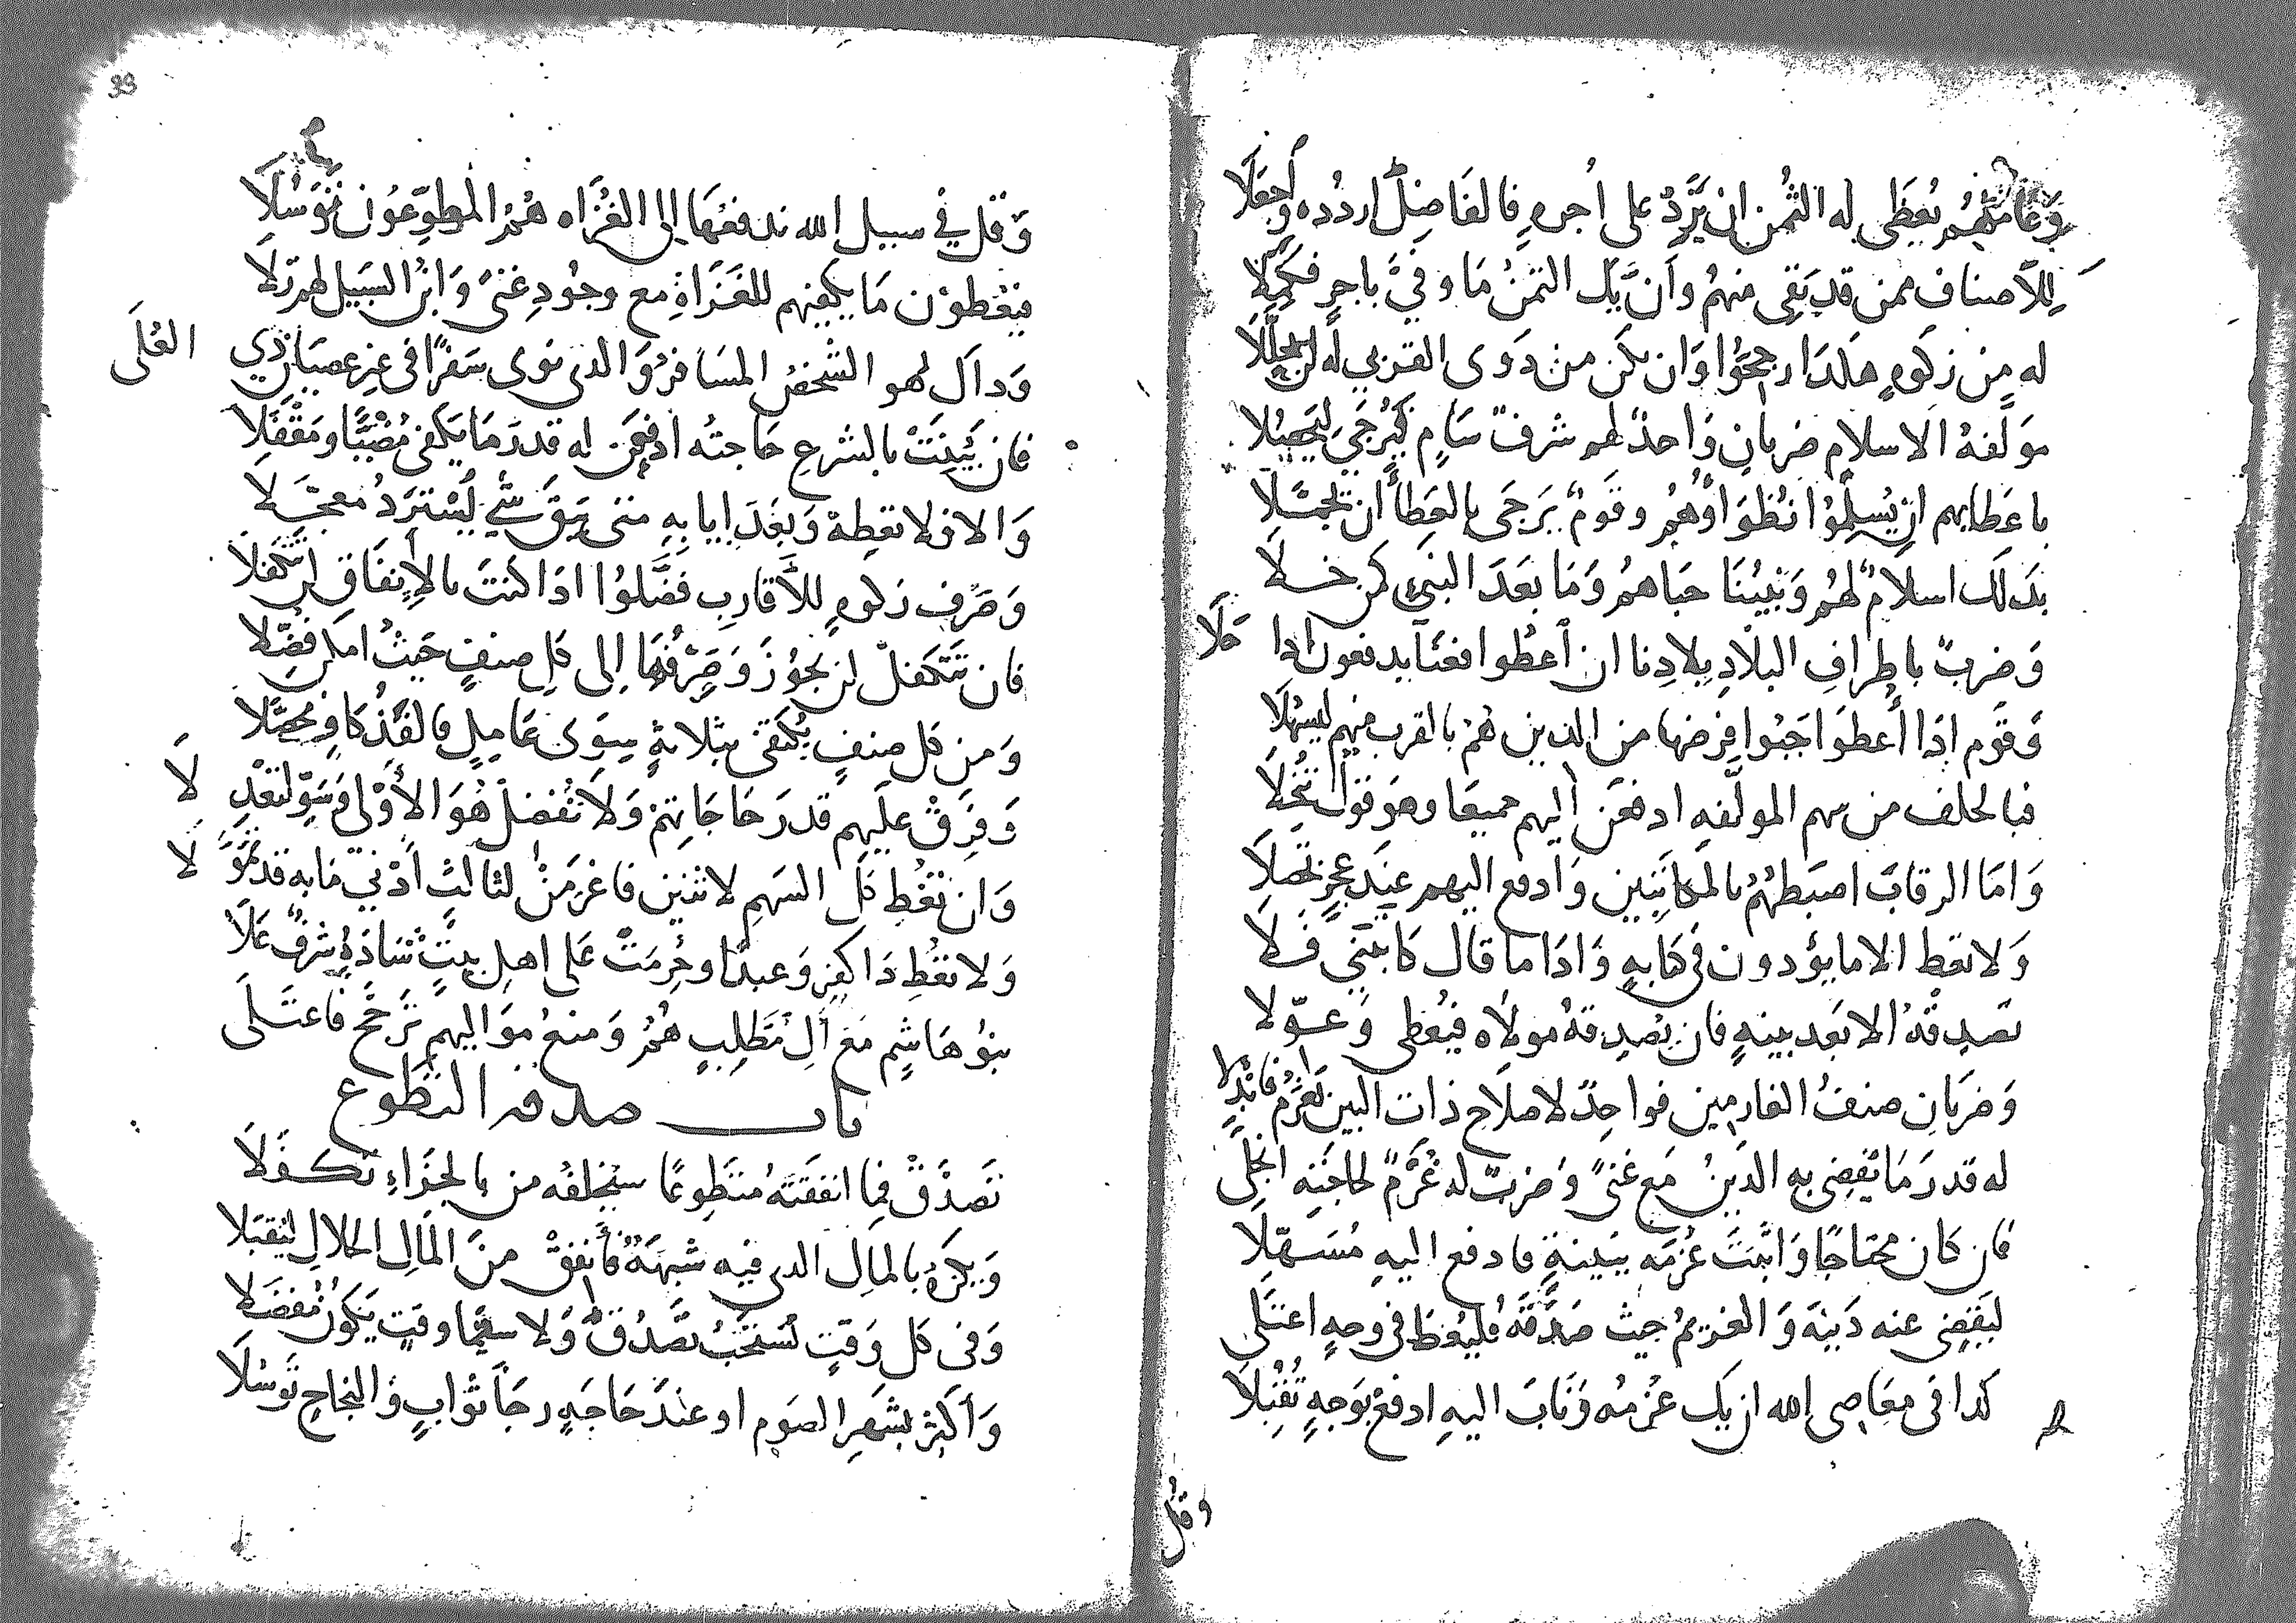 وعاملهم يعطى له الثمن ان يزد على اجره فالفاضل اردده واجعلا
للاصناف ممن قد بقي منهم وان يك الثمن ما وفي باجر فكملا
له من زكوة هكذا رجحوا وان يكن من ذوى القربى له لن يحللا
مولفة الاسلام ضربان واحد لهم شرف سام كبير جي ليحصلا
باعطايهم ان يسلموا نظراؤهم وقوم يرجى بالعطا ان تجملا
بذلك اسلام لهم ونبينا حباهم وما بعد النبي كمن خلا
وضرب باطراف البلاد بلادنا ان اعطوا فعنا يدفعون اذا حلا
وقوم اذا أعطوا جبوا فرضها من الذين هم بالقرب منهم ليسهلا
فبالخلف من سهم المولفه ادفعن اليهم جميعا وهو قول تنخلا
واما الرقاب اضبطهم بالمكاتبين وادفع اليهم عند عجز تحصلا
ولا تعط الا ما يؤدون في كتابه واذا ما قال كاتبني فلا
تصدقه الا بعد بينة فان يصدقه مولاه فيعطى وعولا
وضربان صنف الغارمين فواحد لاصلاح ذات البين لغرم فابذلا
له قدر ما يقضى به الدين مع غنى وضرب له غرم لحاجته انجلى
فان كان محتاجا واثبت غرمه ببينة فادفع اليه مسهلا
ليقضى عنه دينه والغريم حيث صدقه فليعط في وجه اعتلى
كذا في معاصي الله ان يك غرمه وتاب اليه ادفع بوجه تقبلا
وقل
33
وقل في سبيل الله ندفعها إلى الغزاه هم المطوعون توسلا
فيعطون ما يكفيهم للغزاة مع وجود غنى وابن السبيل لهم تلا
وذاك لهو الشخص المسافر والذى نوى سفرا في غير عصيان ذي العلى
فان بينت بالشرع حاجته ادفعن له قدر ما يكفى مضيا ومقفلا
والا فلا تعطه وبعد ايابه متى يبق شي يسترد معجلا
وصرف زكوة للاقارب فضلوا اذا كنت بالانفاق لن تتكفلا
فان تتكفل لن يجوز وصرفها الى كل صنف حيث امكن فضلا
ومن كل صنف يكتفى بثلاثة سوى عامل فالفذ كاف محصلا
وفرق عليهم قدر حاجاتهم ولا تفضل هو الأولى وسو لتعدلا
وان تعط كل السهم لاثنين فاغرمن لثالث أدنى ما به قد تمولا
ولا تعط ذا كفر وعبدا وحرمت على اهل بيت شاذه شرف علا
بنو هاشم مع ال مطلب هم ومنع مواليهم ترجح فاعتلى
باب صدقة التطوع
تصدق فما انفقته متطوعا سيخلفه من بالجزاء تكفلا
ويكره بالمال الذى فيه شبهة فأنفق من المال الحلال ليقبلا
وفى كل وقت تستحب تصدق ولا سيما وقت يكون مفضلا
وأكثر بشهر الصوم او عند حاجة رجا ثواب والنجاح توسلا